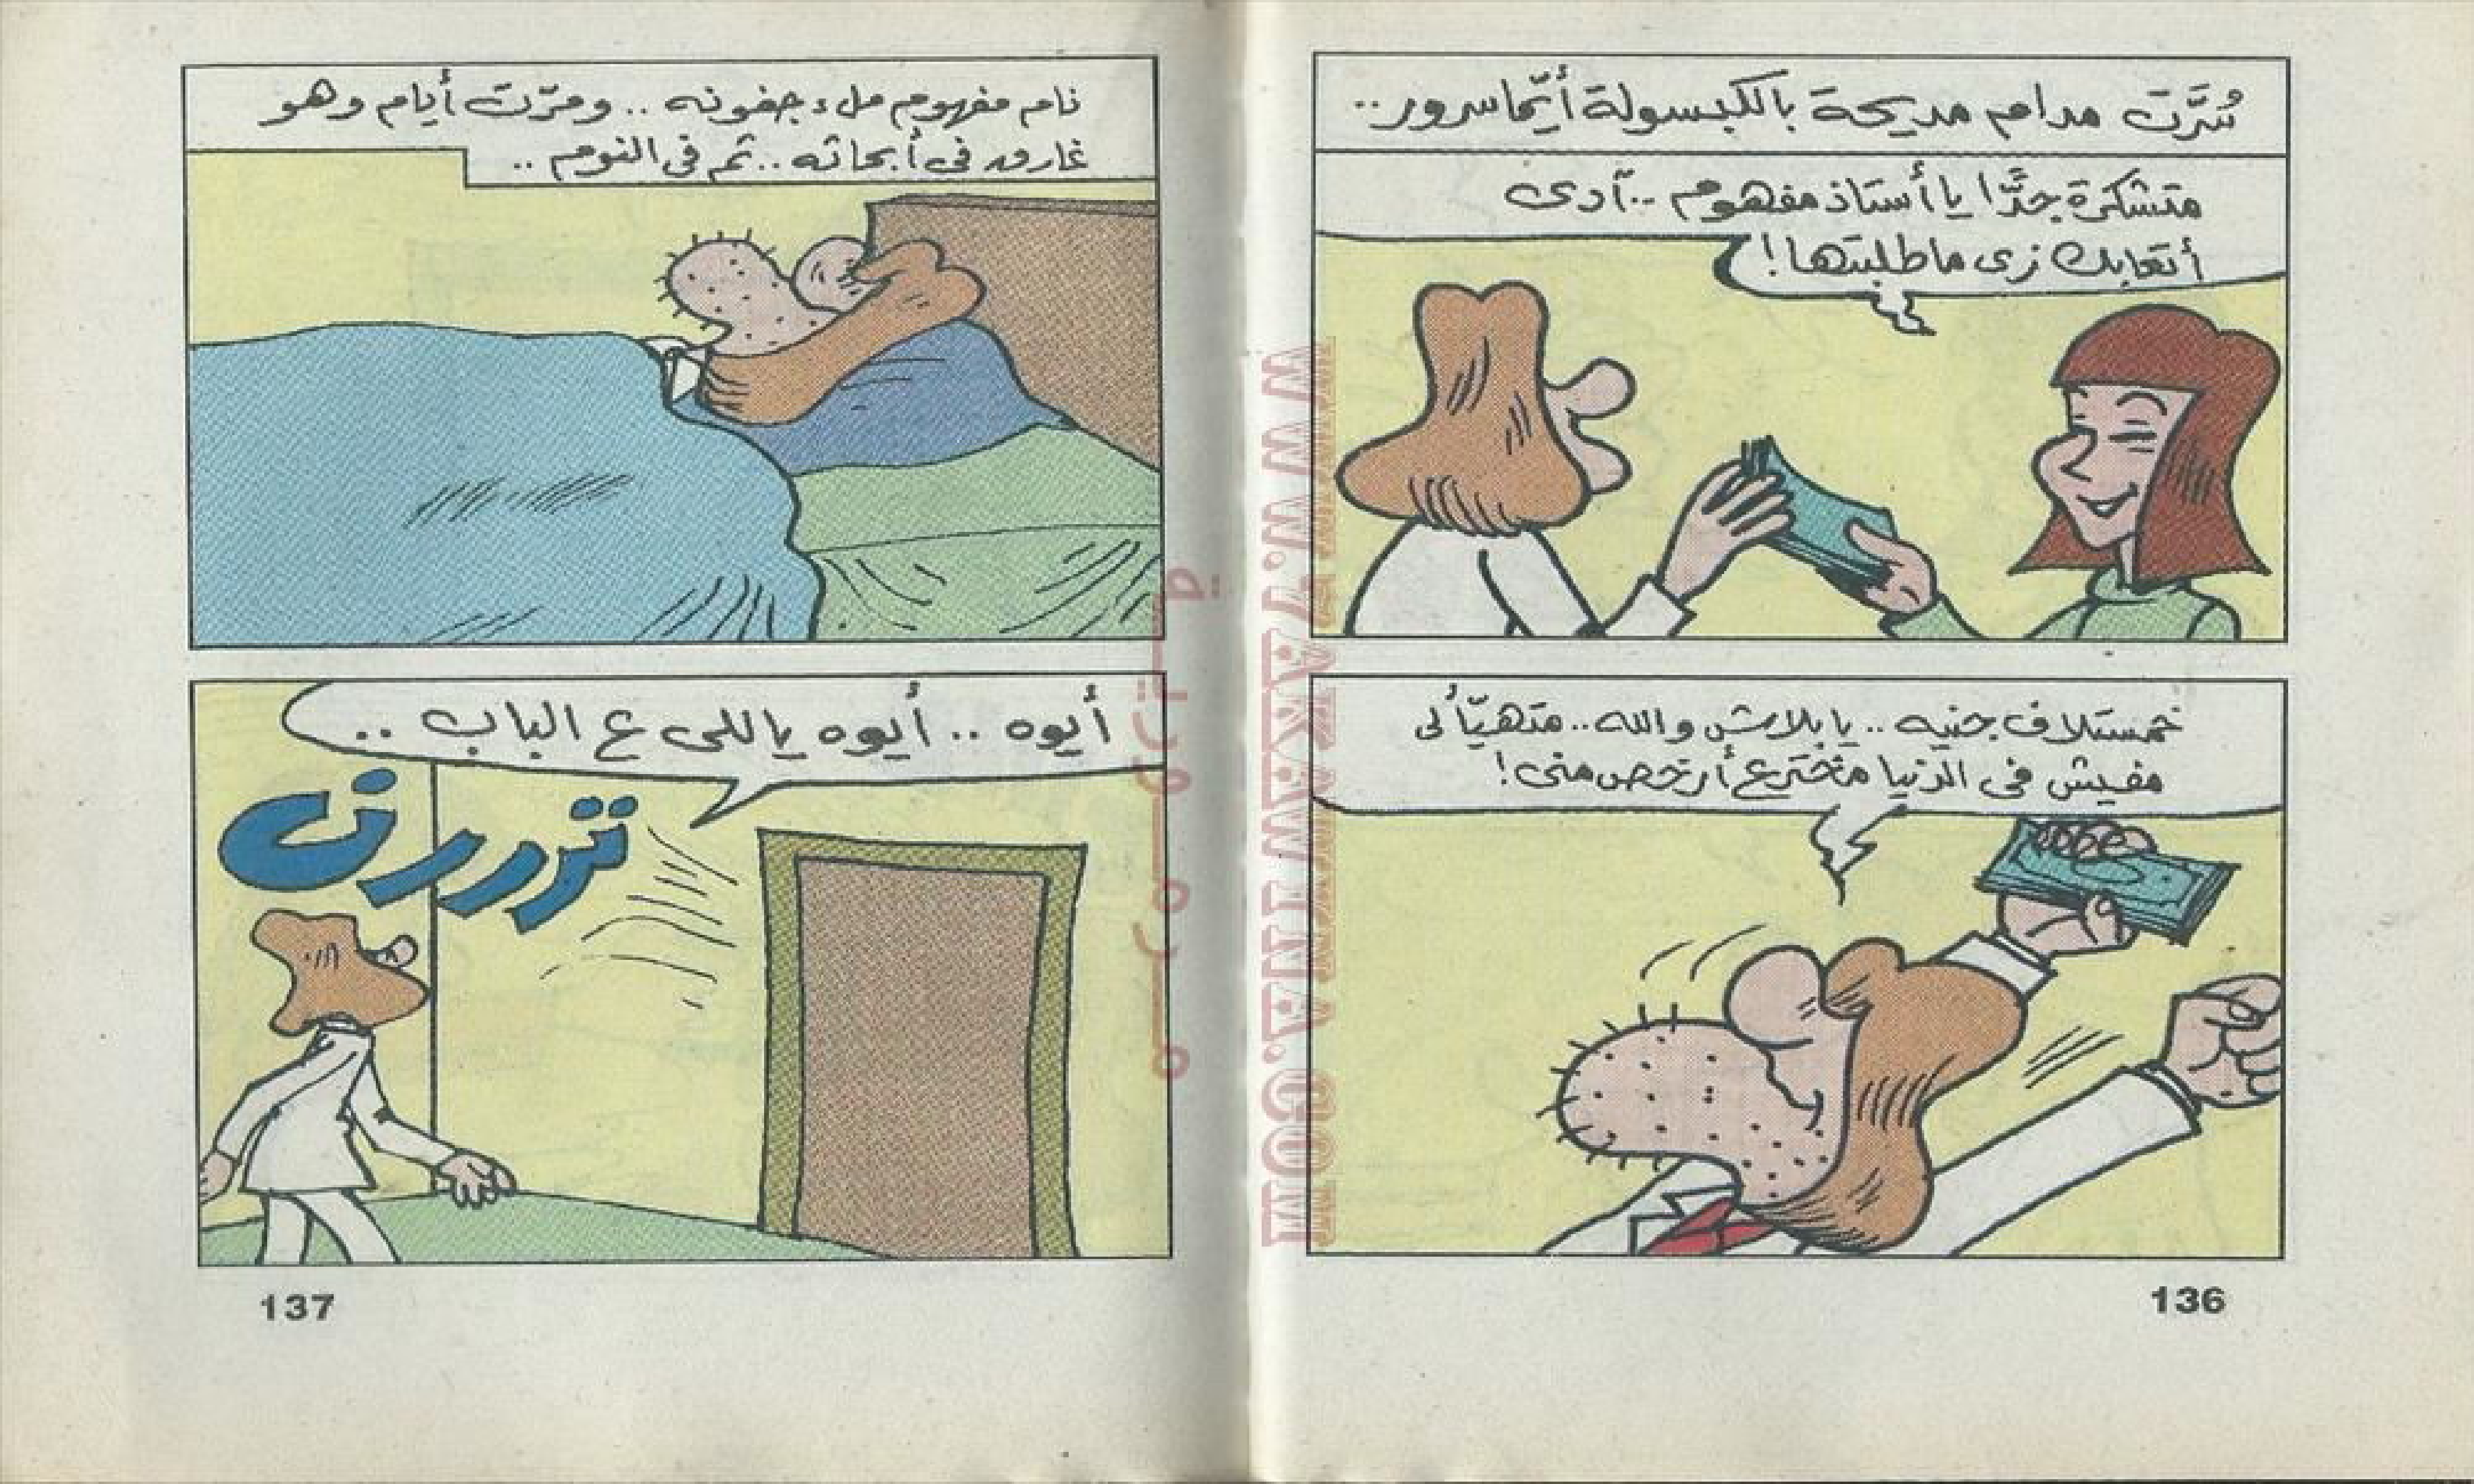 سُرَّت مدام مديحة بالكبسولة أيَّما سرور..
متشكرة جدًّا يا أستاذ مفهوم .. آدى
أتعابك زى ما طلبتها!
خمستلاف جنيه .. يا بلاش والله .. متهيّألى
مفيش فى الدنيا مخترع أرخص منى!
136
نام مفهوم ملء جفونه .. ومرّت أيام وهو
غارق فى أبحاثه .. ثم فى النوم ..
أيوه .. أيوه ياللى ع الباب ..
تررررن
137